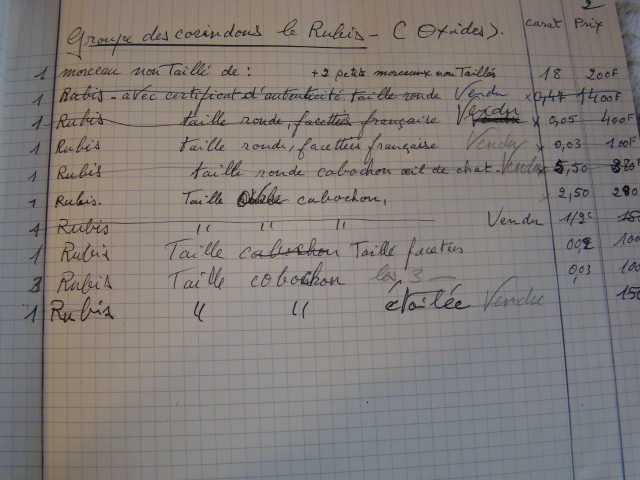 2
Groupe des corindons le Rubis - (Oxides). carat Prix
1 morceau non Taillé de : + 2 petits morceaux non Taillés 18 200F
1 Rubis - avec certificat d'autenticité. taille ronde Vendu x 0,47 1400F
1 Rubis taille ronde, facettes française Vendu x 0,05 400F
1 Rubis taille ronde, facettes française Vendu x 0,03 100F
1 Rubis taille ronde cabochon œil de chat. Vendu x 5,50 380F
1 Rubis. Taille cabochon, x 2,50 280
1 Rubis " " " Vendu 1/2c 150
1 Rubis Taille cabochon Taille facettes 002 100
3 Rubis Taille cobochon les 3 - 0,03 100
1 Rubis " " étoilée Vendu 150